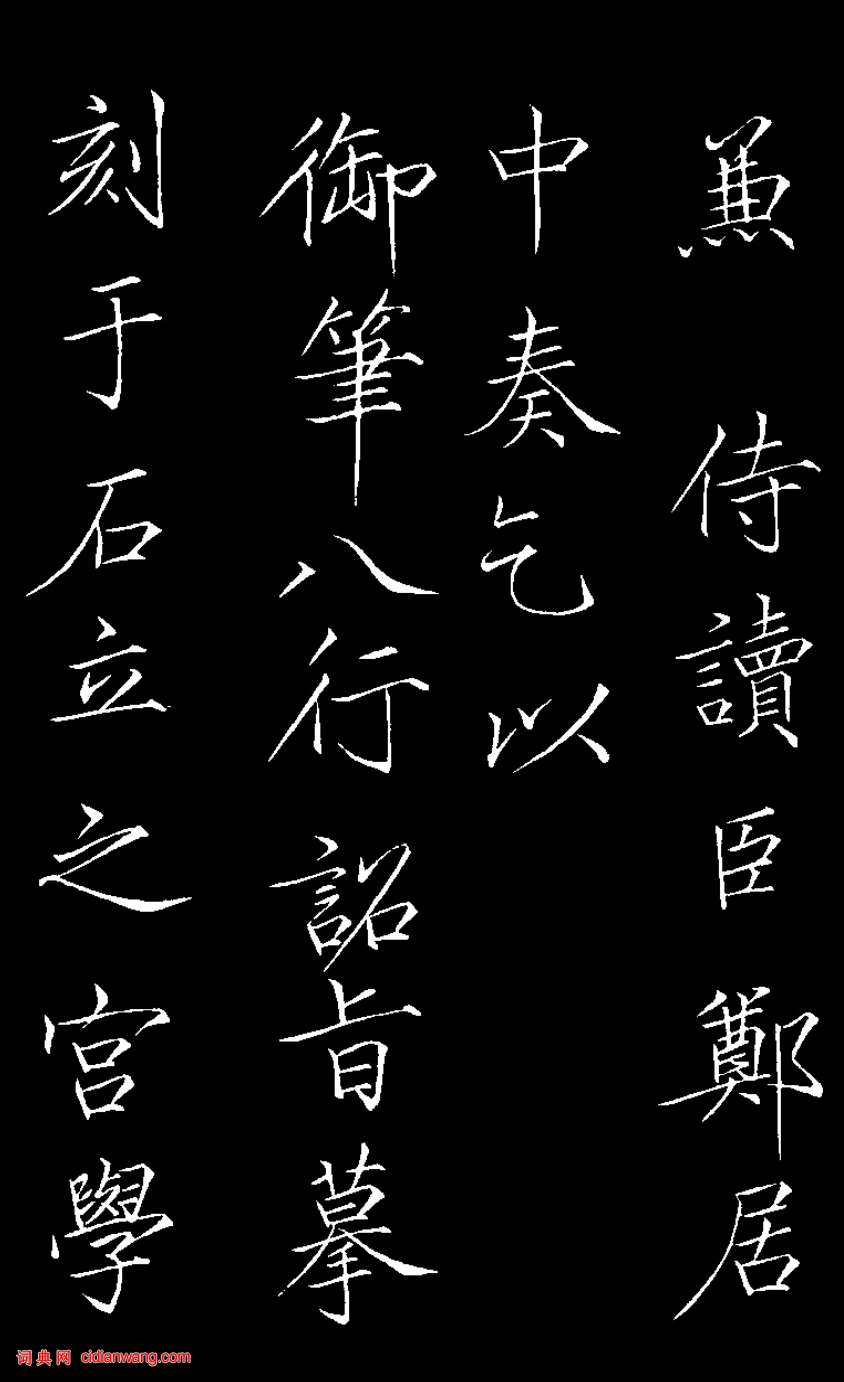 兼侍讀臣鄭居
中奏乞以
御筆八行詔旨摹
刻于石立之宫學
词典网 cidianwang.com